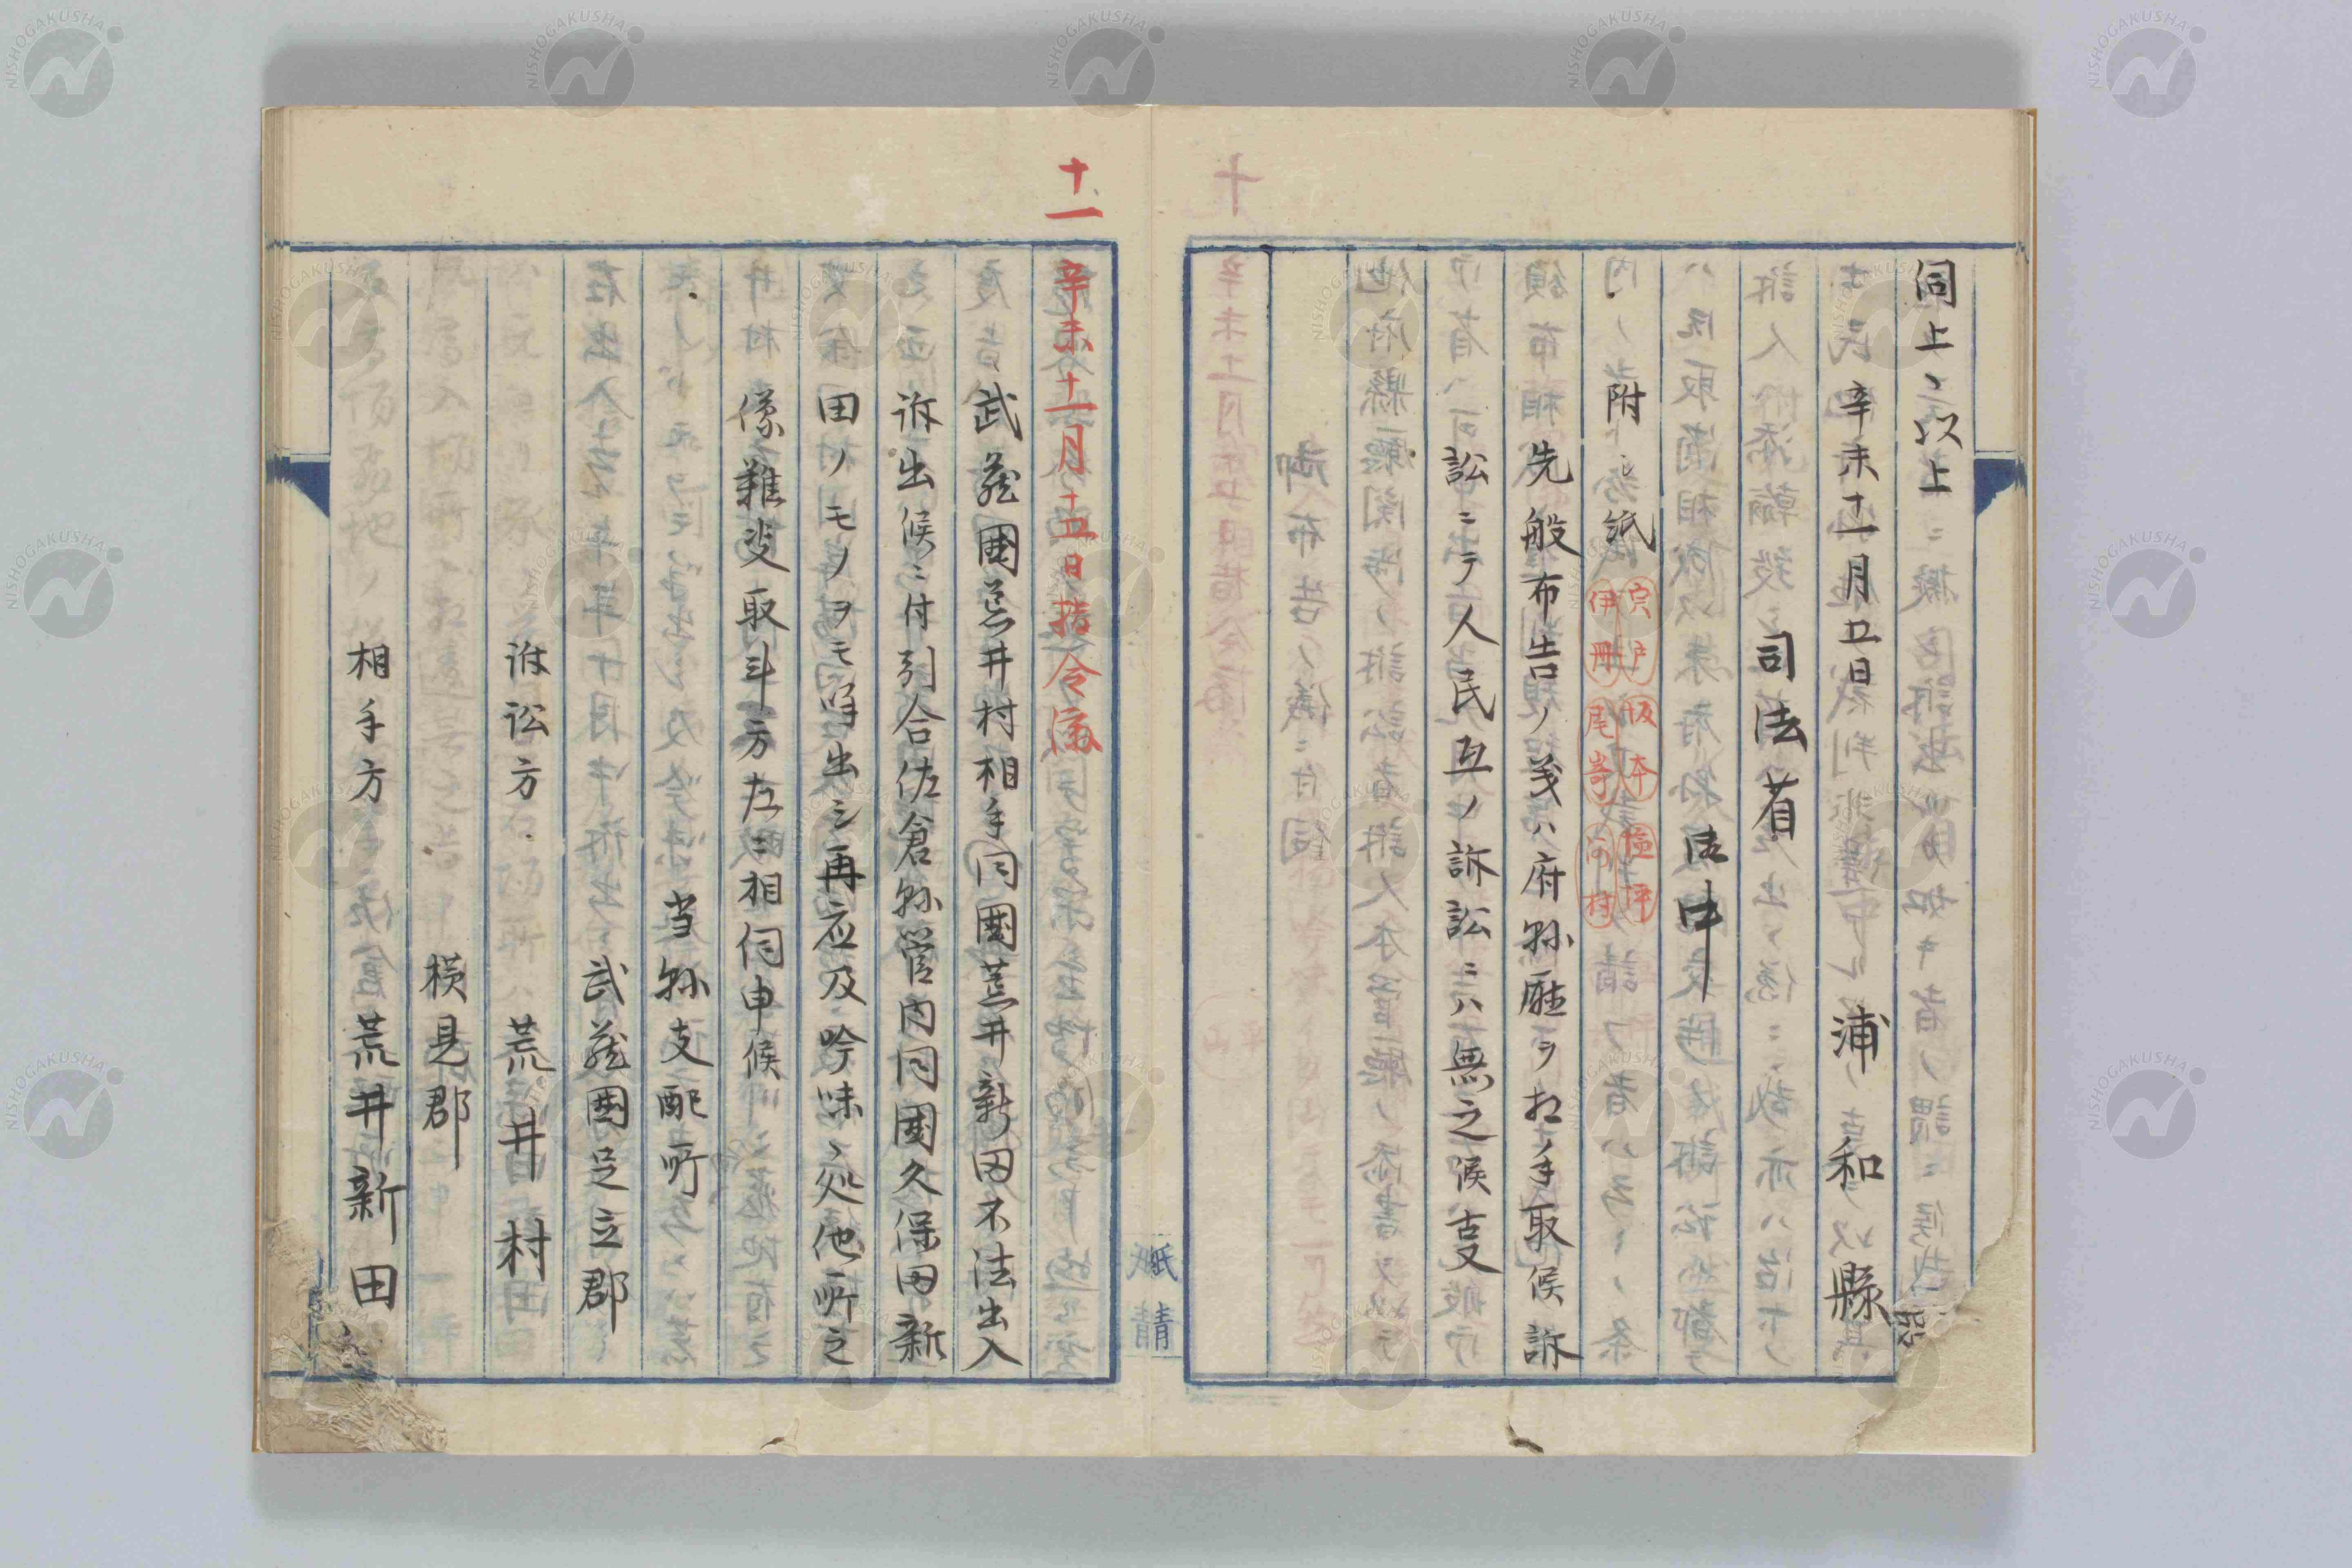 伺上候以上
辛未十一月五日
浦和縣
司法省
御中
附紙
宍戸
坂本
増坪
伊丹
尾崎
河村
先般布告ノ義ハ府縣庁ヲ相手取候訴
訟ニテ人民互ノ訴訟ニハ無之候事
十一
辛未十一月十五日指令済
武蔵國荒井村相手同國荒井新田不法出入
訴出候ニ付引合佐倉縣管内同國久保田新
田ノモノヲモ呼出シ再応及吟味候処他所之
儀難差取斗方左ニ相伺申候
当縣支配所
武蔵國足立郡
訴訟方
荒井村
横見郡
相手方
荒井新田
紙
請
NISHOGAKUSHA